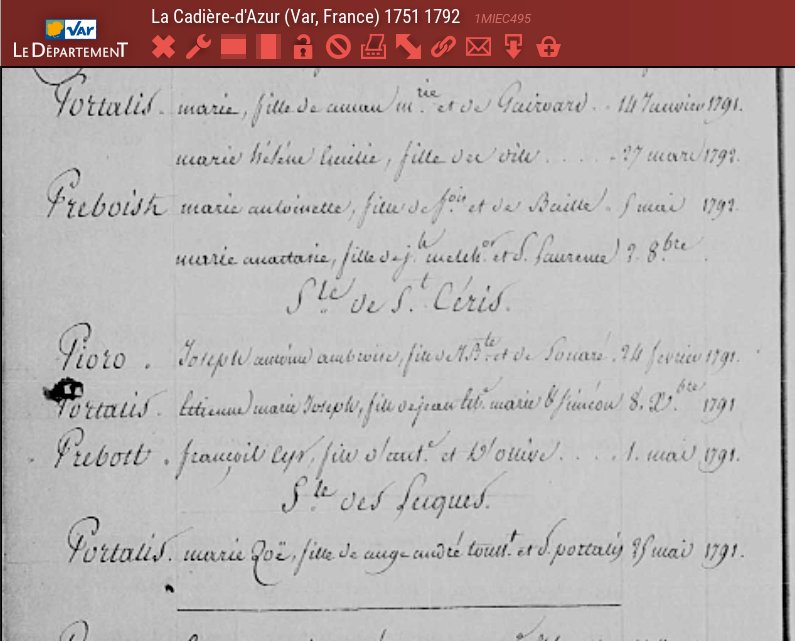 La Cadière-d'Azur (Var, France) 1751 1792 1MIEC495
VAR
LE DÉPARTEMENT
Portalis. marie, fille de m.rie et de Gairoard. 14 Janvier 1791.
marie héléne fille de 27 mars 1792.
Preboist marie antoinette, fille de f.ois et de Baille. 5 mai 1792.
marie anastasie, fille de j.h melch.or et d. Laurence 2. 8.bre
S.te de S.t Céris.
Pioro. Joseph antoine ambroise, fils de et de 24 fevrier 1791.
Portalis. Etienne marie Joseph, fils de jean marie Siméon 8. X.bre 1791
Prebott. françois Cyr, fils d'ant.e et d'ollive. 1. mai 1791.
S.te des Luques.
Portalis. marie Zoë, fille de ange andré tous.t et d. portalis 25 mai 1791.